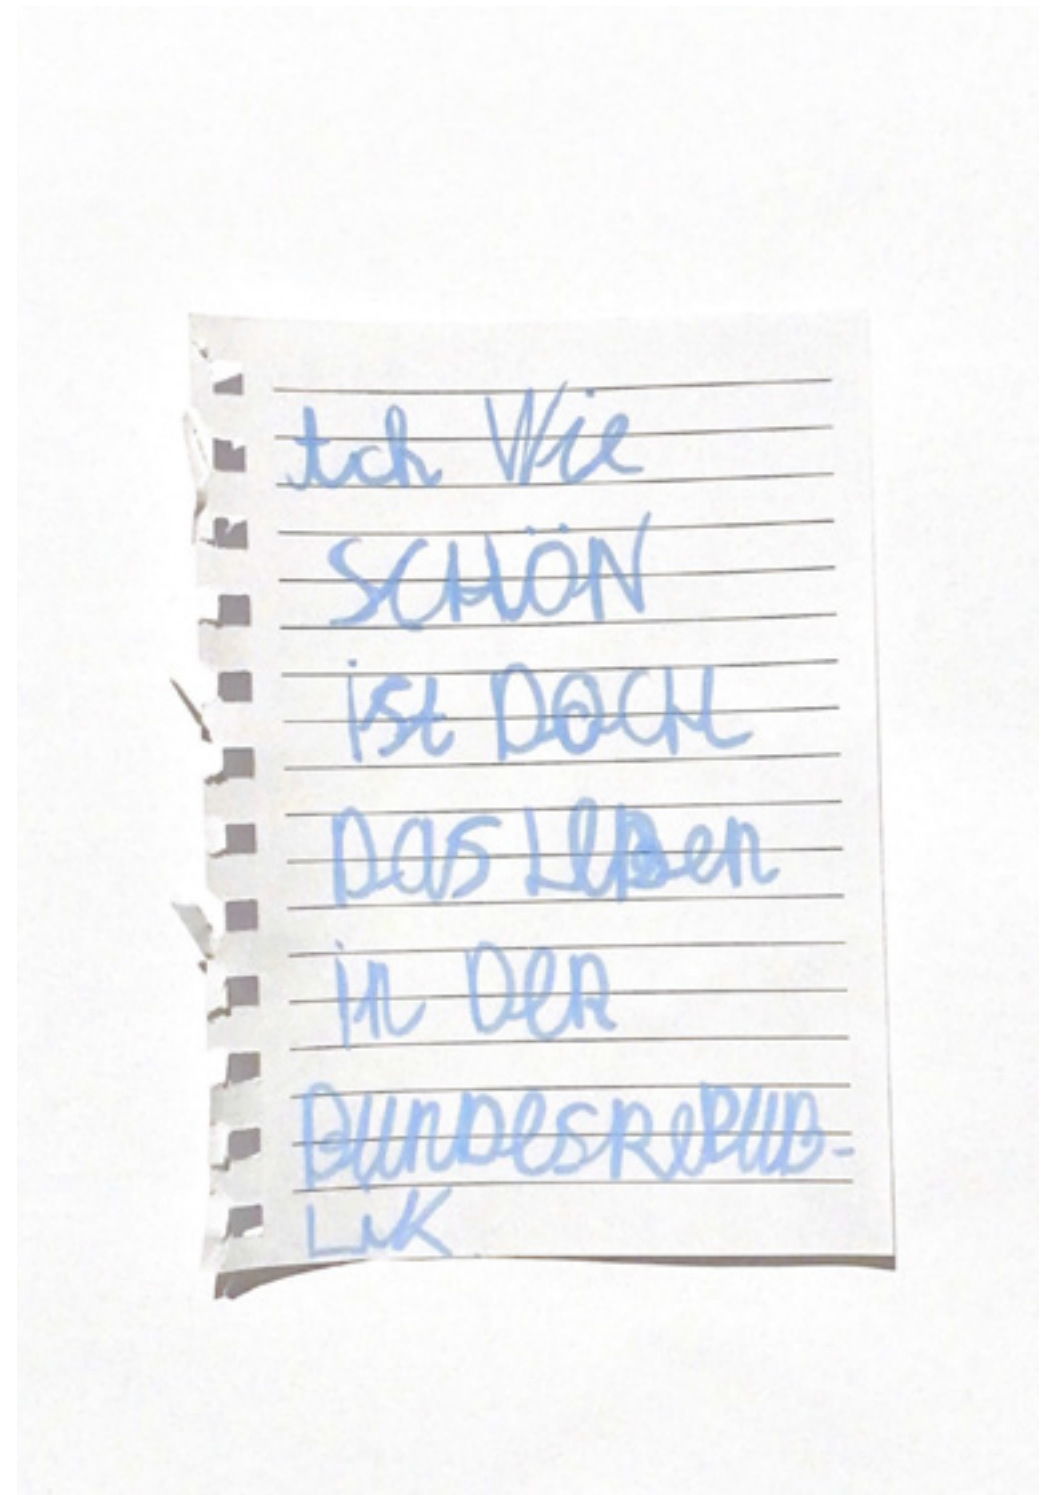 Ach Wie
SCHÖN
ist DOCH
DAS LeBen
in DeR
BUNDesRePUB-
LiK